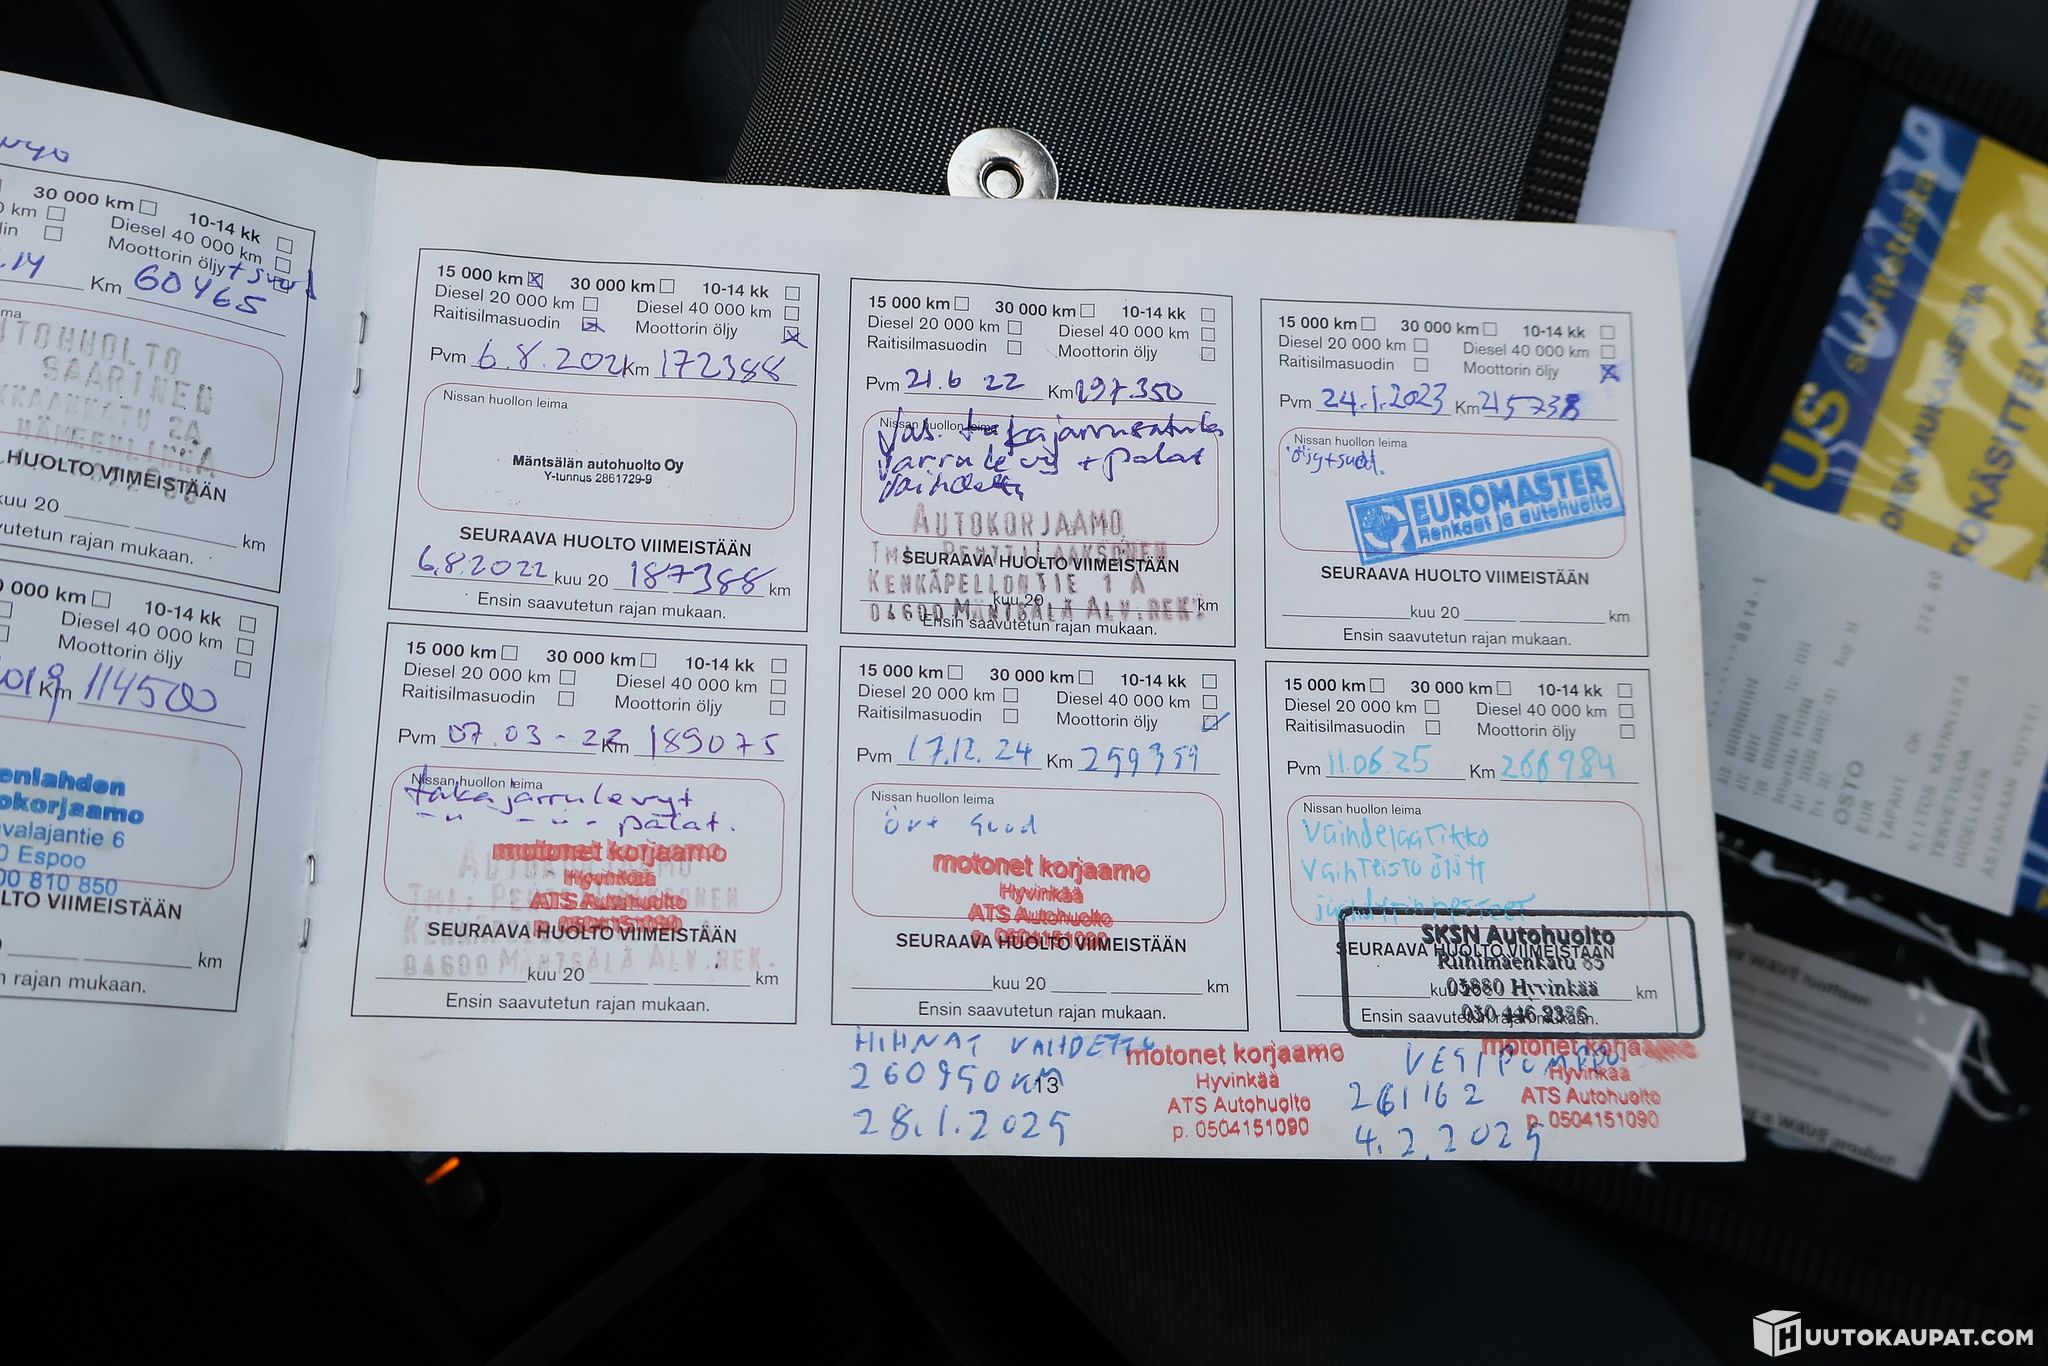 30 000 km 10-14 kk
Diesel 40 000 km
Moottorin öljy
Km 60465
SAARINEN
HÄMEENLINNA
HUOLTO VIIMEISTÄÄN
kuu 20 km
rajan mukaan.
10-14 kk
Diesel 40 000 km
Moottorin öljy
Km 114500
korjaamo
6
Espoo
810 850
VIIMEISTÄÄN
km
rajan mukaan.
15 000 km 30 000 km 10-14 kk
Diesel 20 000 km Diesel 40 000 km
Raitisilmasuodin Moottorin öljy
Pvm 6.8.2021 Km 172388
Nissan huollon leima
Mäntsälän autohuolto Oy
Y-tunnus 2861729-9
SEURAAVA HUOLTO VIIMEISTÄÄN
6.8.2022 kuu 20 187388 km
Ensin saavutetun rajan mukaan.
15 000 km 30 000 km 10-14 kk
Diesel 20 000 km Diesel 40 000 km
Raitisilmasuodin Moottorin öljy
Pvm 21.6 22 Km 197.350
Nissan huollon leima
Vas. takajarrusatula
Jarrulevyt + palat
AUTOKORJAAMO
TMI. PENTTI LAAKSONEN
SEURAAVA HUOLTO VIIMEISTÄÄN
KENKÄPELLONTIE 1 A
kuu 20 km
04600 MÄNTSÄLÄ ALV.REK.
Ensin saavutetun rajan mukaan.
15 000 km 30 000 km 10-14 kk
Diesel 20 000 km Diesel 40 000 km
Raitisilmasuodin Moottorin öljy
Pvm 24.1.2023 Km 215738
Nissan huollon leima
EUROMASTER
Renkaat ja autohuolto
SEURAAVA HUOLTO VIIMEISTÄÄN
kuu 20 km
Ensin saavutetun rajan mukaan.
15 000 km 30 000 km 10-14 kk
Diesel 20 000 km Diesel 40 000 km
Raitisilmasuodin Moottorin öljy
Pvm 07.03-22 Km 189075
Nissan huollon leima
takajarrulevyt
-"- -"- palat.
motonet korjaamo
Hyvinkää
ATS Autohuolto
p. 0504151090
SEURAAVA HUOLTO VIIMEISTÄÄN
04600 MÄNTSÄLÄ ALV.REK.
kuu 20 km
Ensin saavutetun rajan mukaan.
15 000 km 30 000 km 10-14 kk
Diesel 20 000 km Diesel 40 000 km
Raitisilmasuodin Moottorin öljy
Pvm 17.12.24 Km 259359
Nissan huollon leima
motonet korjaamo
Hyvinkää
ATS Autohuolto
p. 0504151090
SEURAAVA HUOLTO VIIMEISTÄÄN
kuu 20 km
Ensin saavutetun rajan mukaan.
15 000 km 30 000 km 10-14 kk
Diesel 20 000 km Diesel 40 000 km
Raitisilmasuodin Moottorin öljy
Pvm 11.06.25 Km 266984
Nissan huollon leima
Vaihdelaatikko
Vaihteistoöljyt
SKSN Autohuolto
SEURAAVA HUOLTO VIIMEISTÄÄN
Riihimäenkatu 85
05880 Hyvinkää
km
Ensin saavutetun rajan mukaan.
HIHNAT VAIHDETTU
260950 KM
28.1.2025
13
motonet korjaamo
Hyvinkää
ATS Autohuolto
p. 0504151090
VESIPUMPPU
261162
4.2.2025
motonet korjaamo
Hyvinkää
ATS Autohuolto
p. 0504151090
suoritetusta
OSTO
EUR
TAPAHT
KIITOS KÄYNNISTÄ
TERVETULOA
UUDELLEEN
ASIAKKAAN KUITTI
a WAVE product
HUUTOKAUPAT.COM